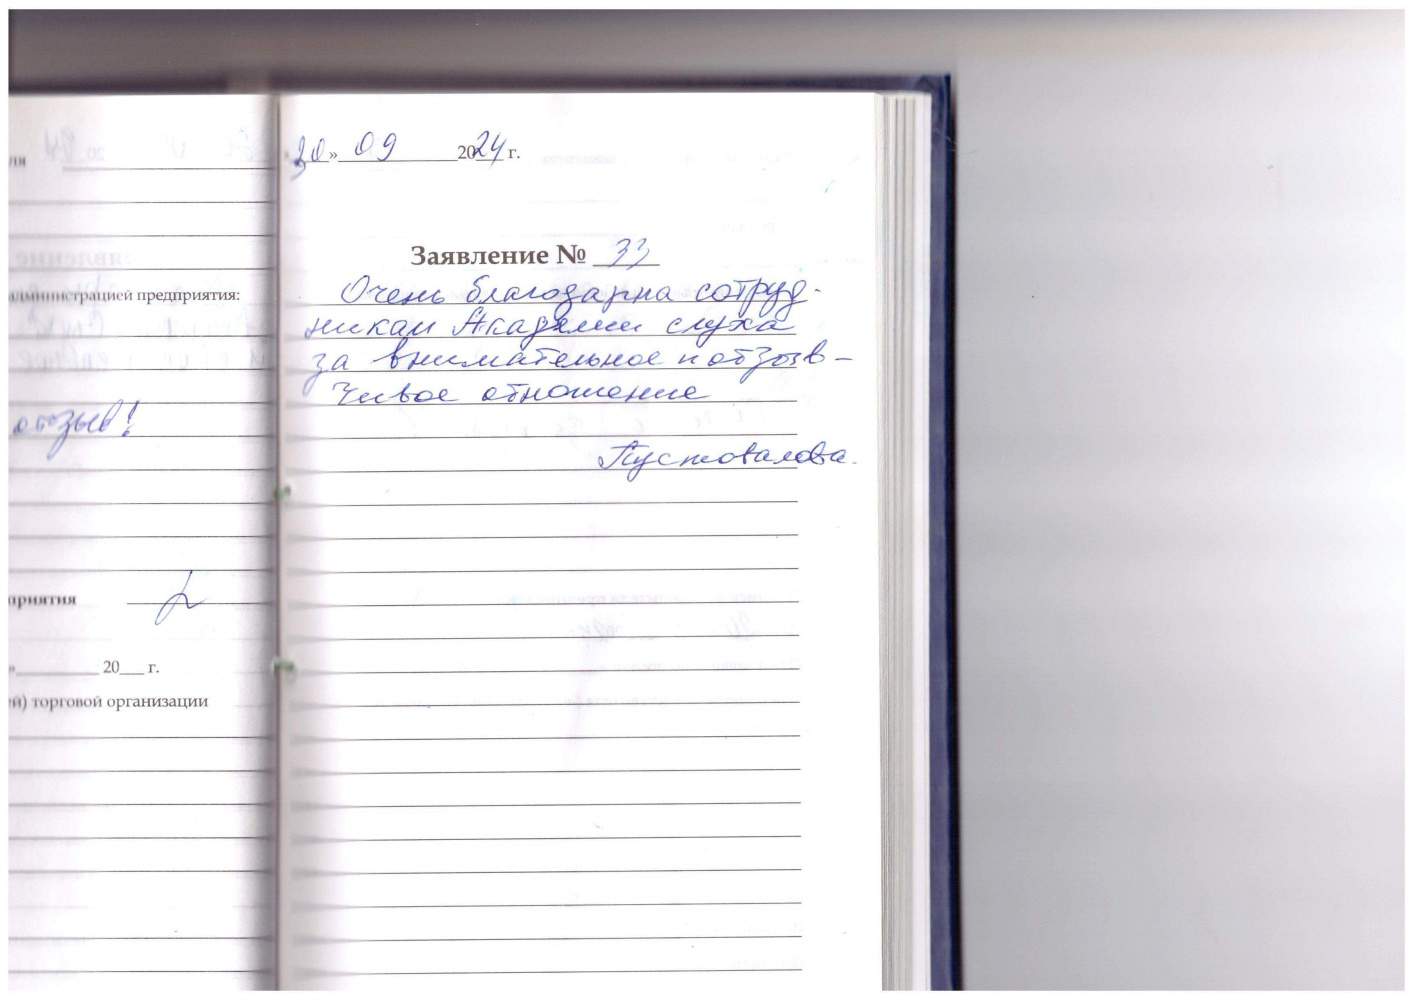 ля
администрацией предприятия:
отзыв!
приятия
»_________ 20___ г.
й) торговой организации
«30» 09 2024 г.
Заявление № 33
Очень благодарна сотруд-
никам Академии слуха
за внимательное и отзыв-
чивое отношение
Пустовалова.